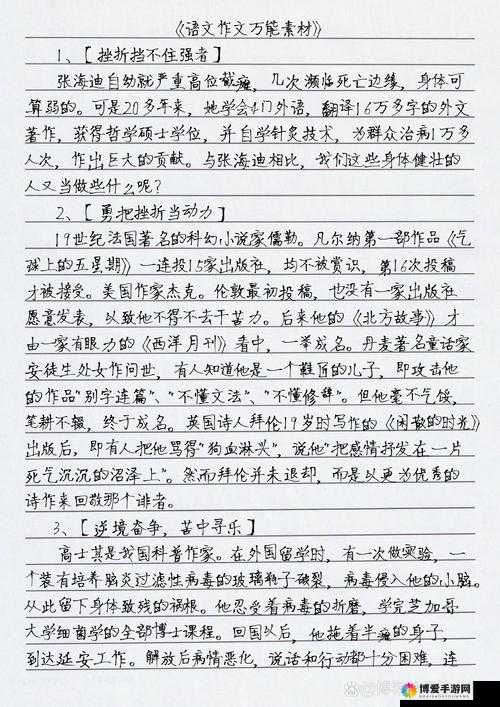 《语文作文万能素材》
1、【挫折挡不住强者】
张海迪自幼就严重高位截瘫，几次濒临死亡边缘，身体可
算弱的。可是20多年来，她学会4门外语，翻译16万多字的外文
著作，获得哲学硕士学位，并自学针灸技术，为群众治病1万多
人次，作出巨大的贡献。与张海迪相比，我们这些身体健壮的
人又当做些什么呢？
2、【勇把挫折当动力】
19世纪法国著名的科幻小说家儒勒。凡尔纳第一部作品《气
球上的五星期》一连投15家出版社，均不被赏识，第16次投稿
才被接受。美国作家杰克。伦敦最初投稿，也没有一家出版社
愿意发表，以致他不得不去干苦力。后来他的《北方故事》才
由一家有眼力的《西洋月刊》看中，一举成名。丹麦著名童话家
安徒生处女作问世，有人知道他是一个鞋匠的儿子，即攻击他
的作品"别字连篇"、"不懂文法"、"不懂修辞"。但他毫不气馁，
笔耕不辍，终于成名。英国诗人拜伦19岁时写作的《闲散的时光》
出版后，即有人把他骂得"狗血淋头"，说他"把感情抒发在一片
死气沉沉的沼泽上"。然而拜伦并未退却，而是以更为优秀的
诗作来回敬那个诽者。
3、【逆境奋争，苦中寻乐】
高士其是我国科普作家。在外国留学时，有一次做实验，一
个装有培养脑炎过滤性病毒的玻璃瓶子破裂，病毒侵入他的小脑。
从此留下身体致残的祸根。他忍受着病毒的折磨，学完芝加哥
大学细菌学的全部博士课程。回国以后，他拖着半瘫的身子，
到达延安工作。解放后病情恶化，说话和行动都十分困难，连
博爱手游网